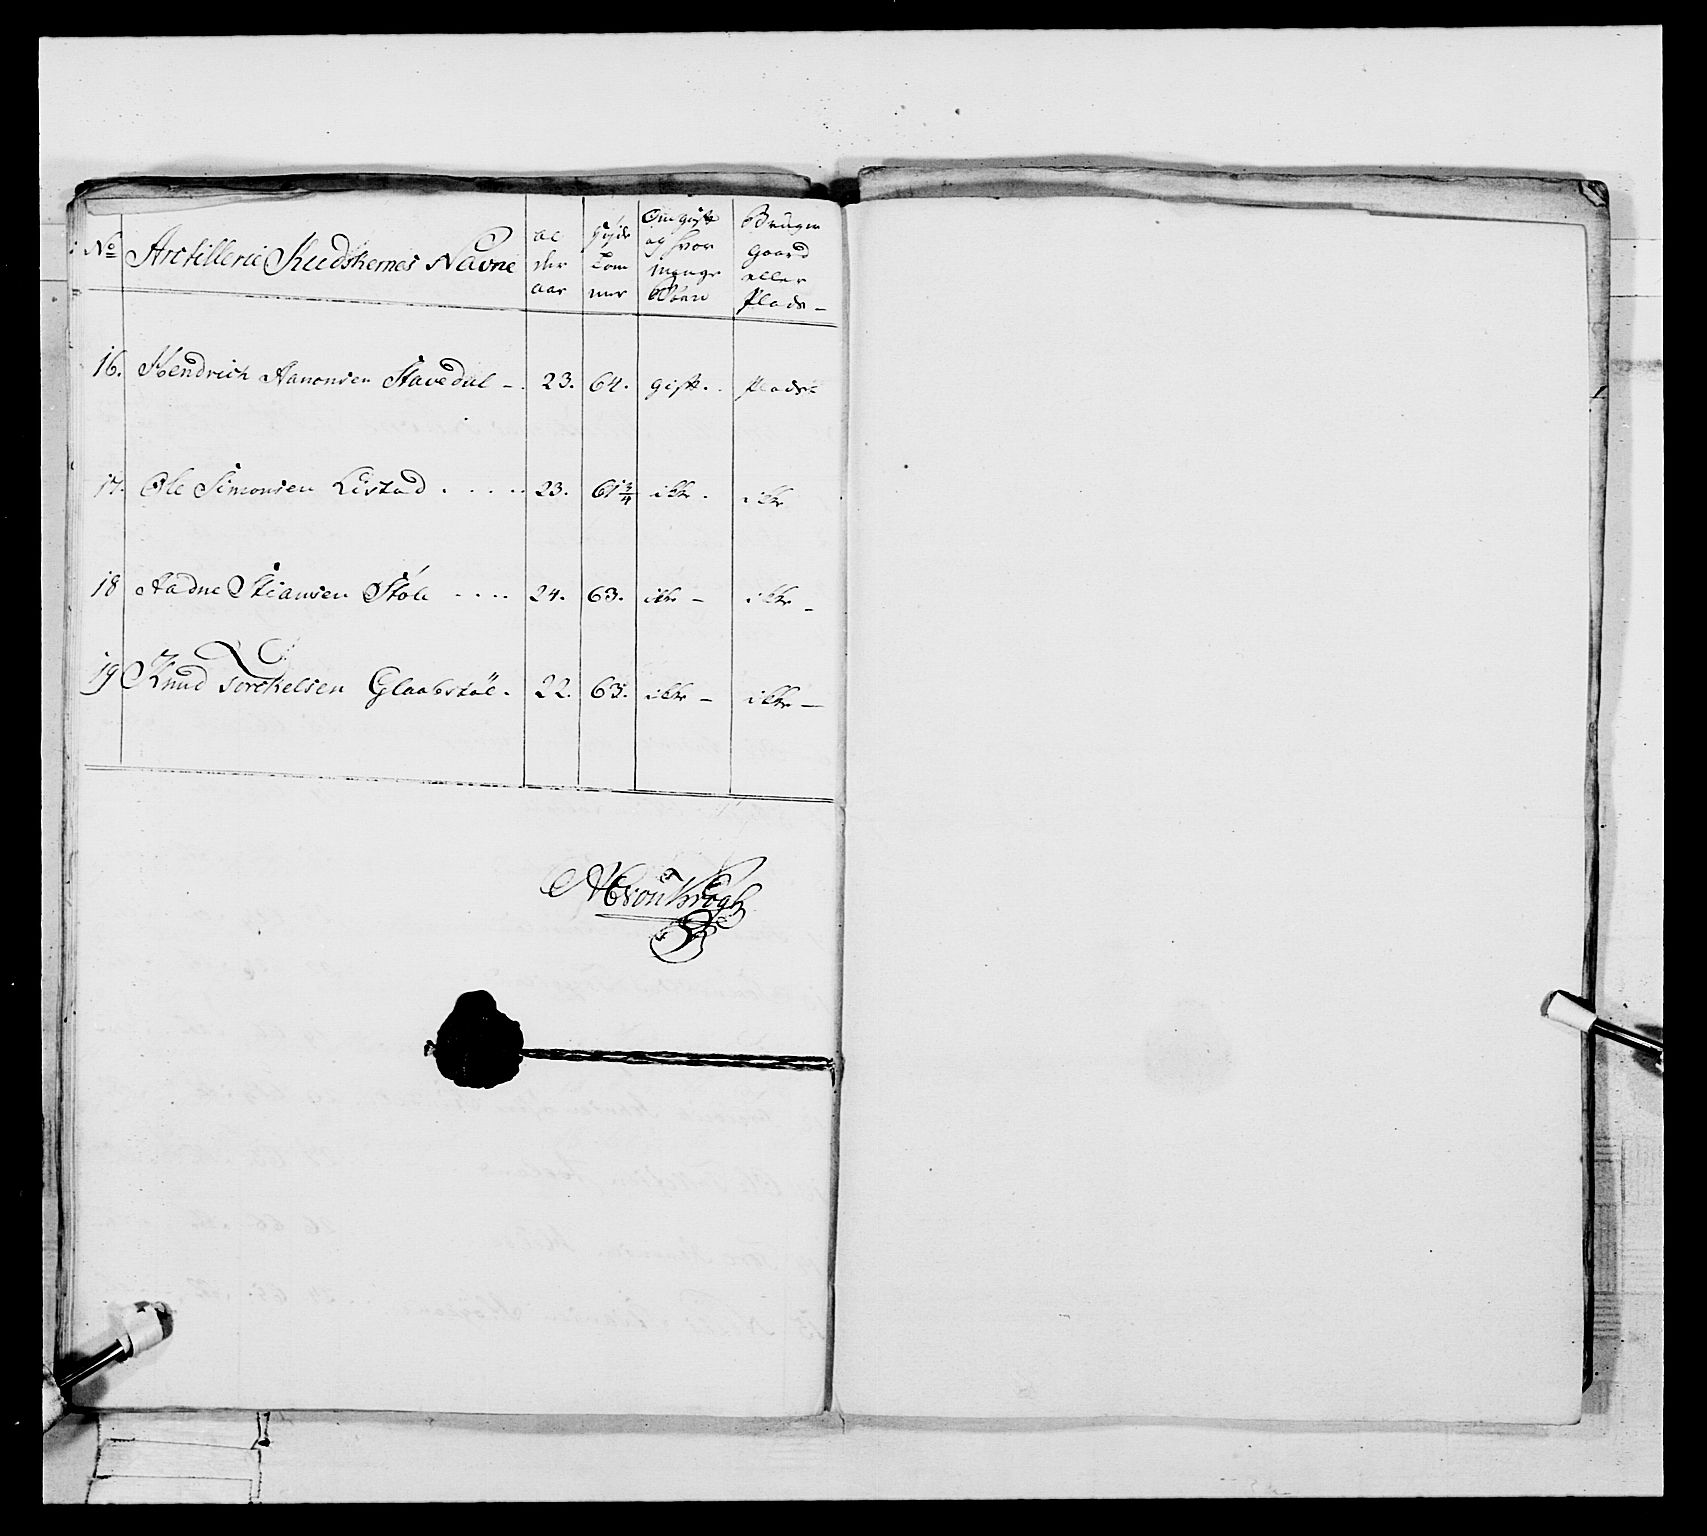 No Artillerie Kudskernes Navne
al der aar
Høyde Tommer
Om gift og hvor mange Børn
Bruger Gaard eller Plads -
16. Hendrich Aanonsen Stavedal - 23. 64. gift. Plads
17. Ole Simonsen Listad . . . . 23. 61 3/4 ikke. ikke
18 Aadne Stiansen Støle . . . . 24. 63. ikke - ikke -
19 Knud Torckelsen Glaabstøl. 22. 63. ikke - ikke -
Krogh